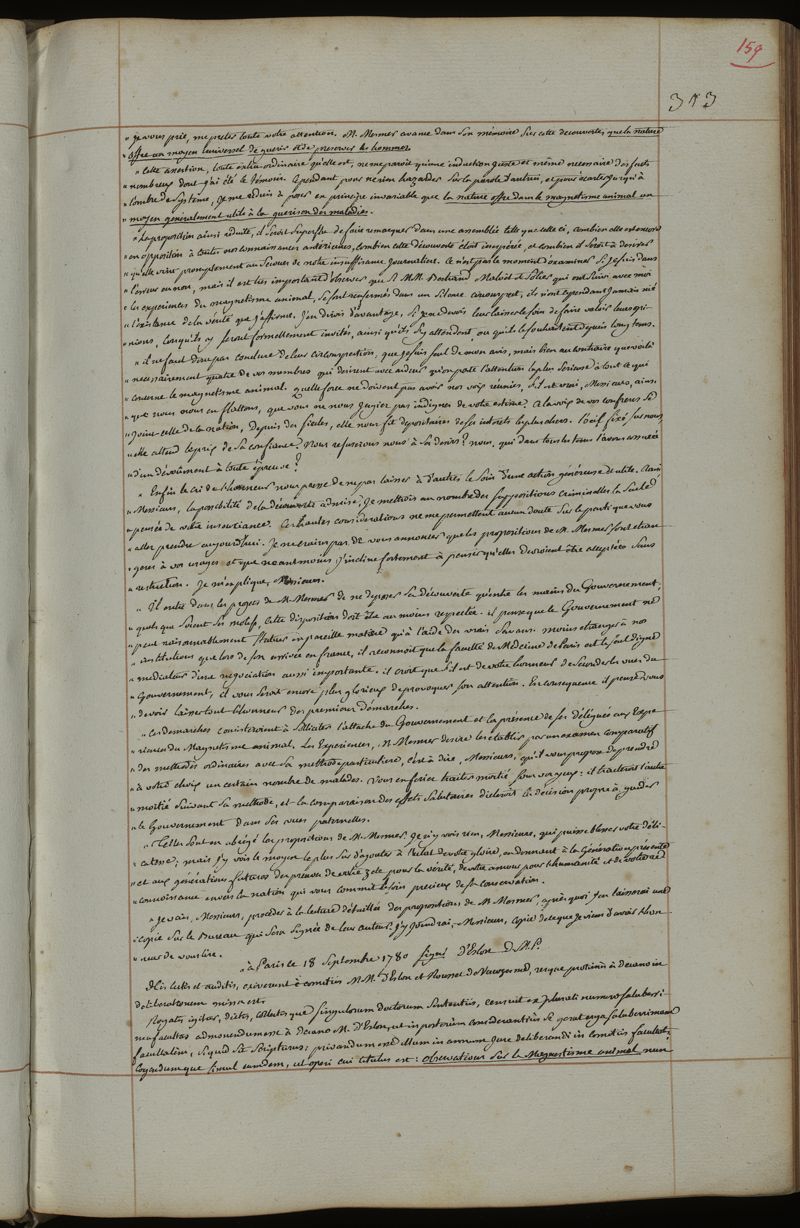 159
313
" je vous prie, me preter toute votre attention. M. Mesmer avance dans son mémoire sur cette decouverte, que la nature
" offre un moyen universel de guerir et de preserver les hommes.
" Cette assertion, toute extra-ordinaire qu'elle est, ne me paroit qu'une induction juste et même necessaire des faits
" nombreux dont j'ai été le témoin. Cependant pour ne rien hazarder sur la parole d'autrui, et pour écarter jusqu'à
" l'ombre de systême, je me réduis à poser en principe invariable que la nature offre dans le magnetisme animal un
" moyen généralement utile à la guerison des maladies.
" La proposition ainsi réduite, il seroit superflu de faire remarquer dans une assemblée telle que celle ci, combien elle est encore
" en opposition à toutes nos connaissances antérieures, combien cette découverte étoit inespérée, et combien il seroit à desirer
" qu'elle vint promptement au secours de notre insuffisance journaliere. Ce n'est pas le moment d'examiner si je suis dans
" l'erreur ou non, mais il est très important d'observer que si MM. Bertrand, Maloet et Sollier qui ont suivi avec moi
" les experiences du magnetisme animal, se sont renfermés dans un silence circonspect, ils n'ont cependant jamais nié
" l'existence de la vérité que j'affirme. J'en dirois d'avantage, si je ne devois leur laisser le soin de faire valoir leurs opi-
" nions, lorsqu'ils y seront formellement invités, ainsi qu'ils s'y attendent, ou qu'ils le souhaitent depuis long tems.
" il ne faut donc pas conclure de leur circonspection, que je suis seul de mon avis, mais bien au contraire que voilà
" necessairement quatre de vos membres qui desirent avec ardeur qu'on porte l'attention la plus sérieuse à tout ce qui
" concerne le magnetisme animal. Quelle force ne doivent pas avoir nos voix réunies, s'il est vrai, Messieurs, ainsi
" que nous nous en flattons, que vous ne nous jugiez pas indignes de votre estime? A la voix de vos confreres se
" joint celle de la nation, depuis des siecles, elle nous fit depositaires de ses interets les plus chers. l'oeil fixé sur nous,
" elle attend le prix de sa confiance. Nous refuserons nous à ses desirs? nous, qui dans tous les tems l'avons assurée
" d'un dévoûment à toute épreuve?
" Enfin le cri de l'honneur nous presse de ne pas laisser à d'autres le soin d'une action généreuse et utile. Ainsi
" Messieurs, la possibilité de la découverte admise, je mettrois au nombre des suppositions criminelles la seule
" pensée de votre insouciance. Ces hautes considerations ne me permettent aucun doute sur le parti que vous
" allez prendre aujourd'hui. Je ne crains pas de vous annoncer que les propositions de M. Mesmer sont etran-
" geres à vos usages et que neantmoins, j'incline fortement à penser qu'elles devroient être acceptées sans
" restriction. Je m'explique, Messieurs.
" Il entre dans les projets de M. Mesmer de ne deposer sa découverte qu'entre les mains du Gouvernement;
" quels que soient ses motifs, cette disposition doit être au moins respectée. il pense que le Gouvernement ne
" peut raisonnablement statuer en pareille matière qu'à l'aide des vrais savans. moins etranger à nos
" institutions que lors de son arrivée en france, il reconnoit que la faculté de Médecine de Paris est le seul digne
" mediateur d'une négociation aussi importante. il croit que s'il est de votre honneur de seconder les vues du
" Gouvernement, il vous seroit encore plus glorieux de provoquer son attention. En consequence il pense vous
" devoir laisser tout l'honneur des premieres démarches.
" Ces demarches consisteroient à solliciter l'attache du Gouvernement et la présence de ses délégués aux expe-
" riences du Magnetisme animal. Les Experiences, M. Mesmer desire les établir par un examen comparatif
" des methodes ordinaires avec sa methode particuliere, c'est à dire, Messieurs, qu'il vous propose de prendre
" à votre choix un certain nombre de malades. Vous en feriez traiter moitié sous vos yeux: il traiteroit l'autre
" moitié suivant sa methode, et la comparaison des effets salutaires dicteroit la décision propre à guider
" le Gouvernement dans ses vues paternelles.
" Telles sont en abrégé les propositions de M. Mesmer. Je n'y vois rien, Messieurs, qui puisse blesser votre déli-
" catesse; mais j'y vois le moyen le plus sur d'ajouter à l'éclat de votre gloire, en donnant à la Génération présente
" et aux générations futures des preuves de votre zele pour la vérité, de votre amour pour l'humanité et de votre re-
" connoissance envers la nation qui vous commit le soin precieux de sa conservation.
" Je vais, Messieurs, procéder à la lecture détaillée des propositions de M. Mesmer, après quoi j'en laisserai une
" copie sur le Bureau qui sera signée de leur auteur. J'y joindrai, Messieurs, copie de ce que je viens d'avoir l'hon-
" neur de vous lire.
" à Paris ce 18 Septembre 1780 signé D'Eslon D.M.P.
His lectis et auditis, exiverunt è comitiis MM. D'Eslon et Roussel de Vauzesmes, resque protinùs à decano in
deliberationem missa est.
Rogatis igitur, dictis, collatisque singulorum doctorum sententiis, censuit ex plurali numero saluberri-
ma facultas admonendum esse à Decano M. D'Eslon, ut in posterùm consideratiùs se gerat erga saluberrimam
facultatem, siquid sit scripturus: privandum esse illum in annum jure deliberandi in comitiis facultatis;
cogendumque simul eumdem, ut operi cui titulus est: observations sur le Magnetisme animal nun